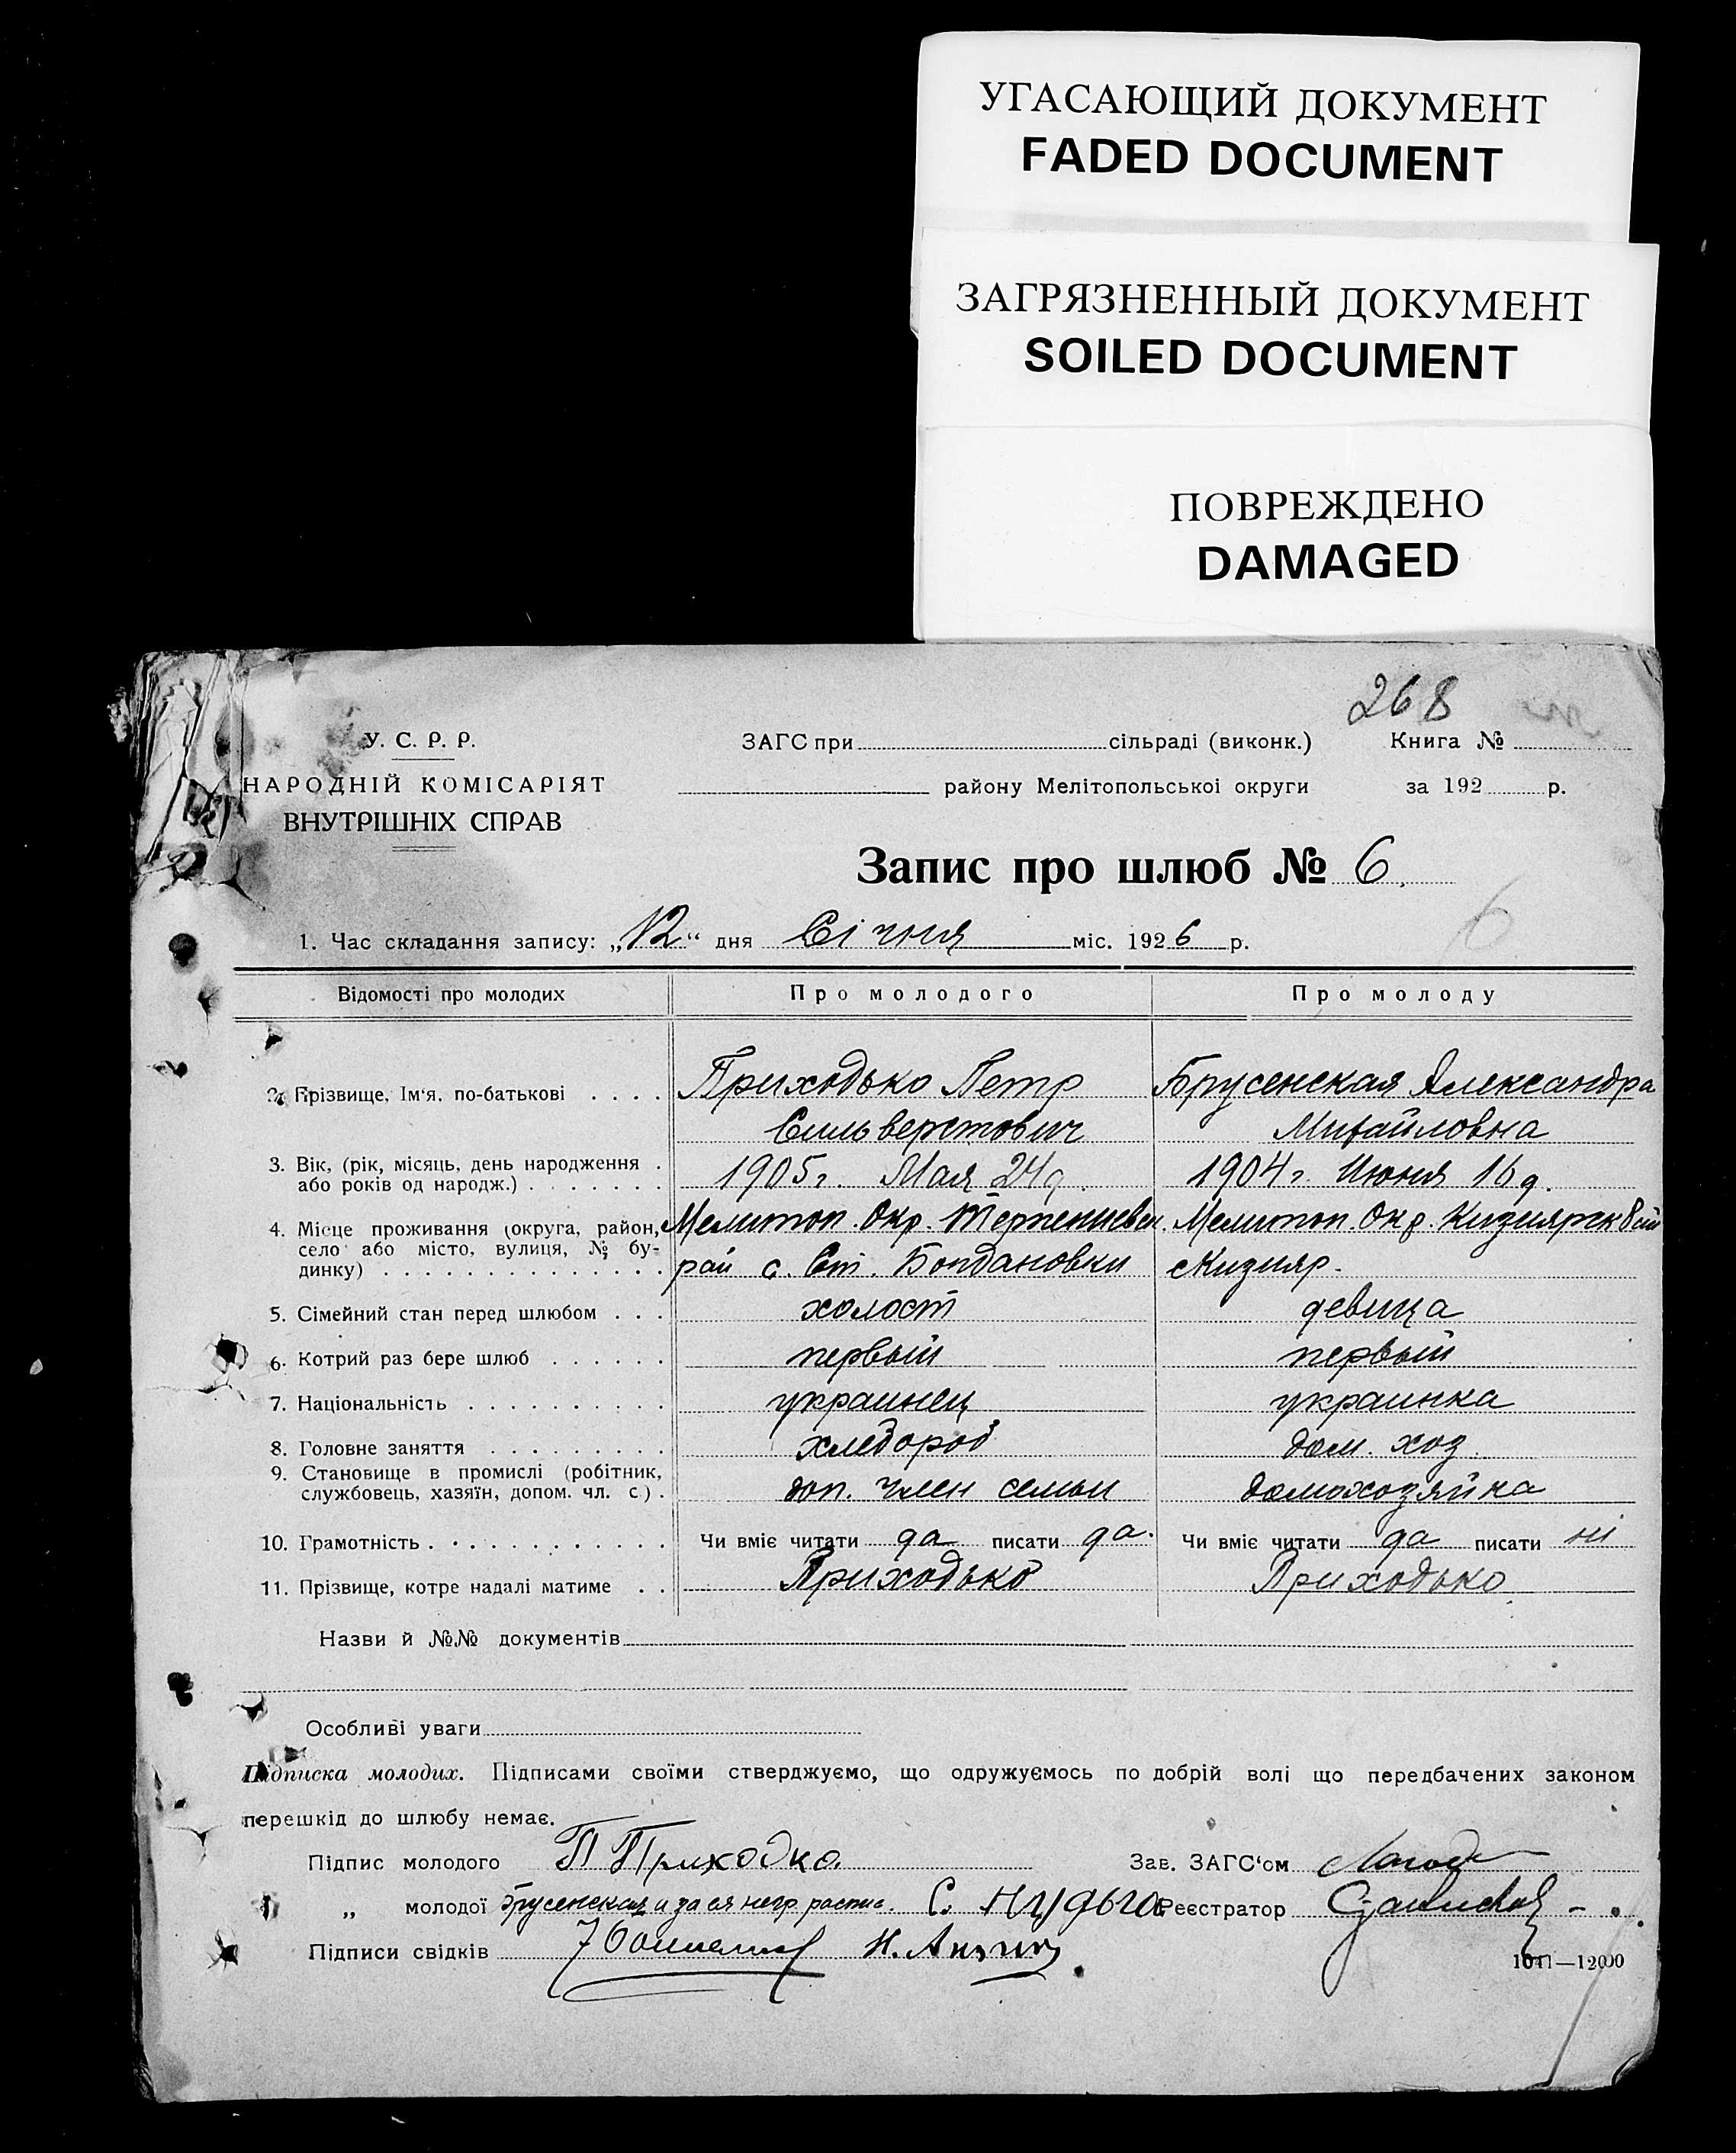 УГАСАЮЩИЙ ДОКУМЕНТ
FADED DOCUMENT
ЗАГРЯЗНЕННЫЙ ДОКУМЕНТ
SOILED DOCUMENT
ПОВРЕЖДЕНО
DAMAGED
268
У. С. Р. Р.
НАРОДНІЙ КОМІСАРІЯТ
ВНУТРІШНІХ СПРАВ
ЗАГС при сільраді (виконк.) Книга №
району Мелітопольської округи за 192 р.
Запис про шлюб № 6
6
1. Час складання запису: „12“ дня Січня міс. 1926 р.
Відомості про молодих Про молодого Про молоду
2. Прізвище, Ім'я, по-батькові Приходько Петр Брусенская Александра
Сильверстович Михайловна
3. Вік, (рік, місяць, день народження 1905г. Мая 24д. 1904г. Июня 16д.
або років од народж.)
4. Місце проживання (округа, район, Мелитоп. Окр. Терпениевск. Мелитоп. Окр. Кизиярский
село або місто, вулиця, № бу- рай с. Ст. Богдановки с Кизияр.
динку)
5. Сімейний стан перед шлюбом холост девица
6. Котрий раз бере шлюб первый первый
7. Національність украинец украинка
8. Головне заняття хлебороб дом. хоз.
9. Становище в промислі (робітник, доп. член семьи домохозяйка
службовець, хазяїн, допом. чл. с.)
10. Грамотність Чи вміє читати да писати да. Чи вміє читати да писати ні
11. Прізвище, котре надалі матиме Приходько Приходько
Назви й №№ документів
Особливі уваги
Підписка молодих. Підписами своїми стверджуємо, що одружуємось по добрій волі що передбачених законом
перешкід до шлюбу немає.
Підпис молодого П Приходко. Зав. ЗАГС'ом
„ молодої Брусенская и за ея негр. распис. С. Нудьга Реєстратор
Підписи свідків
1041—12000